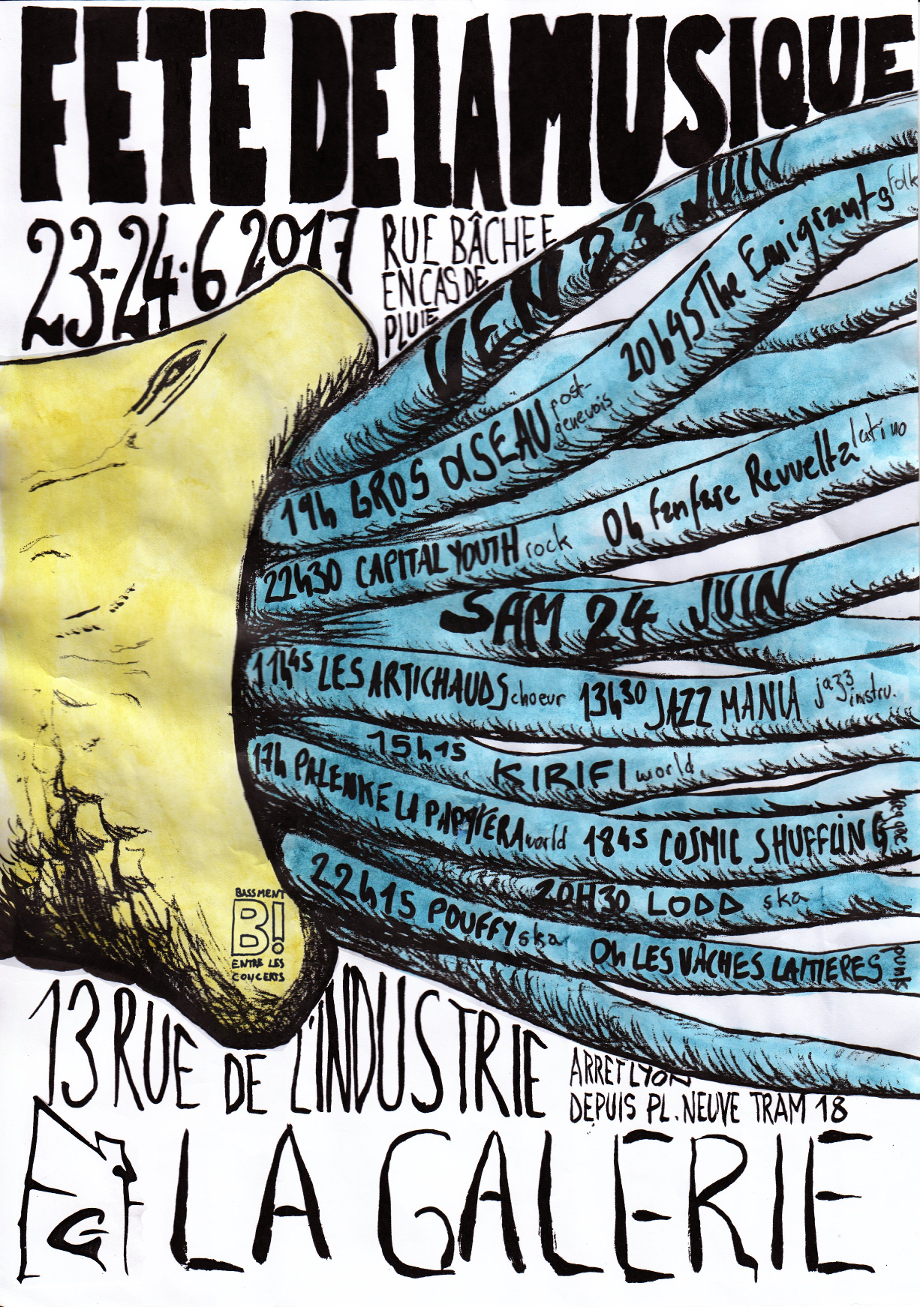 FETE DE LA MUSIQUE
23-24·6 2017
RUE BÂCHEE
EN CAS DE
PLUIE
VEN 23 JUIN
19h GROS OISEAU post-genevois
20h45 The Emigrants folk
22H30 CAPITAL YOUTH rock
0h Fanfare Revuelta latino
SAM 24 JUIN
11h45 LES ARTICHAUDS choeur
13h30 JAZZ MANIA jazz instru.
15h15 KIRIFI world
17h PALENKE LA PAPAYERA world
1845 COSMIC SHUFFLING reggae
20H30 LODD ska
22h15 POUFFY ska
0h LES VACHES LAITIERES punk
BASSMENT
B!
ENTRE LES
CONCERTS
13 RUE DE L'INDUSTRIE
ARRET LYON
DEPUIS PL. NEUVE TRAM 18
G
LA GALERIE